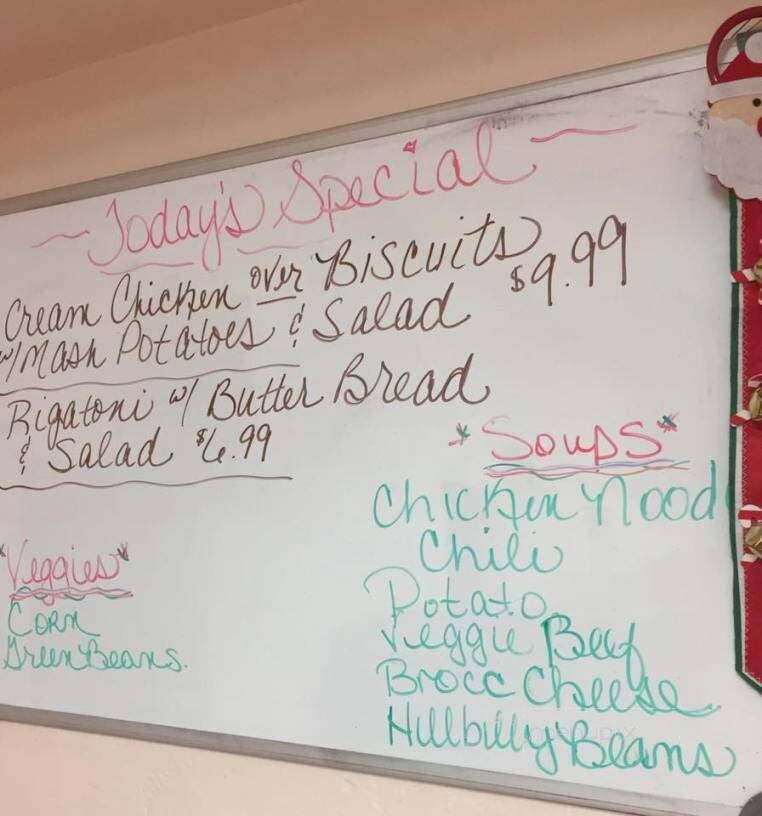 ~ Today's Special ~
Cream Chicken over Biscuits
w/ Mash Potatoes & Salad $9.99
Rigatoni w/ Butter Bread
& Salad $6.99
*Soups*
Chicken Nood
Chili
Potato
Veggie Beef
Brocc Cheese
Hillbilly Beans
"Veggies"
Corn
Green Beans.